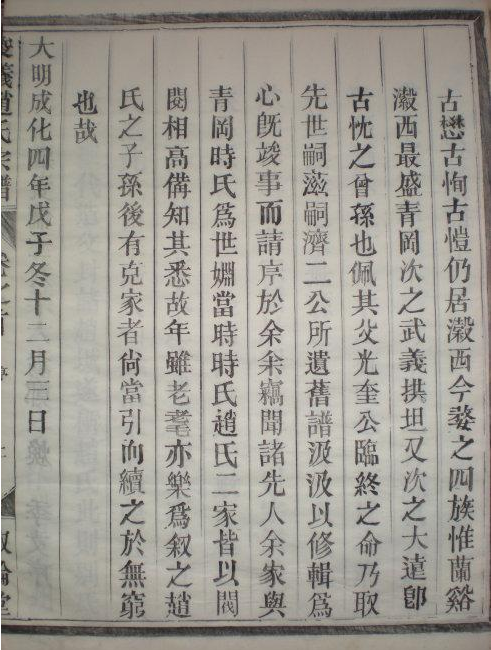 古懋古恂古愷仍居瀫西今婺之四族惟蘭谿
瀫西最盛青岡次之武義拱坦又次之大遠卽
古忱之曾孫也佩其父光奎公臨終之命乃取
先世嗣滋嗣濟二公所遺舊譜汲汲以修輯爲
心旣竣事而請序於余余竊聞諸先人余家與
青岡時氏爲世婣當時時氏趙氏二家皆以閥
閱相高備知其悉故年雖老耄亦樂爲叙之趙
氏之子孫後有克家者尙當引而續之於無窮
也哉
大明成化四年戊子冬十二月三日
義 趙氏宗譜 卷之首 序